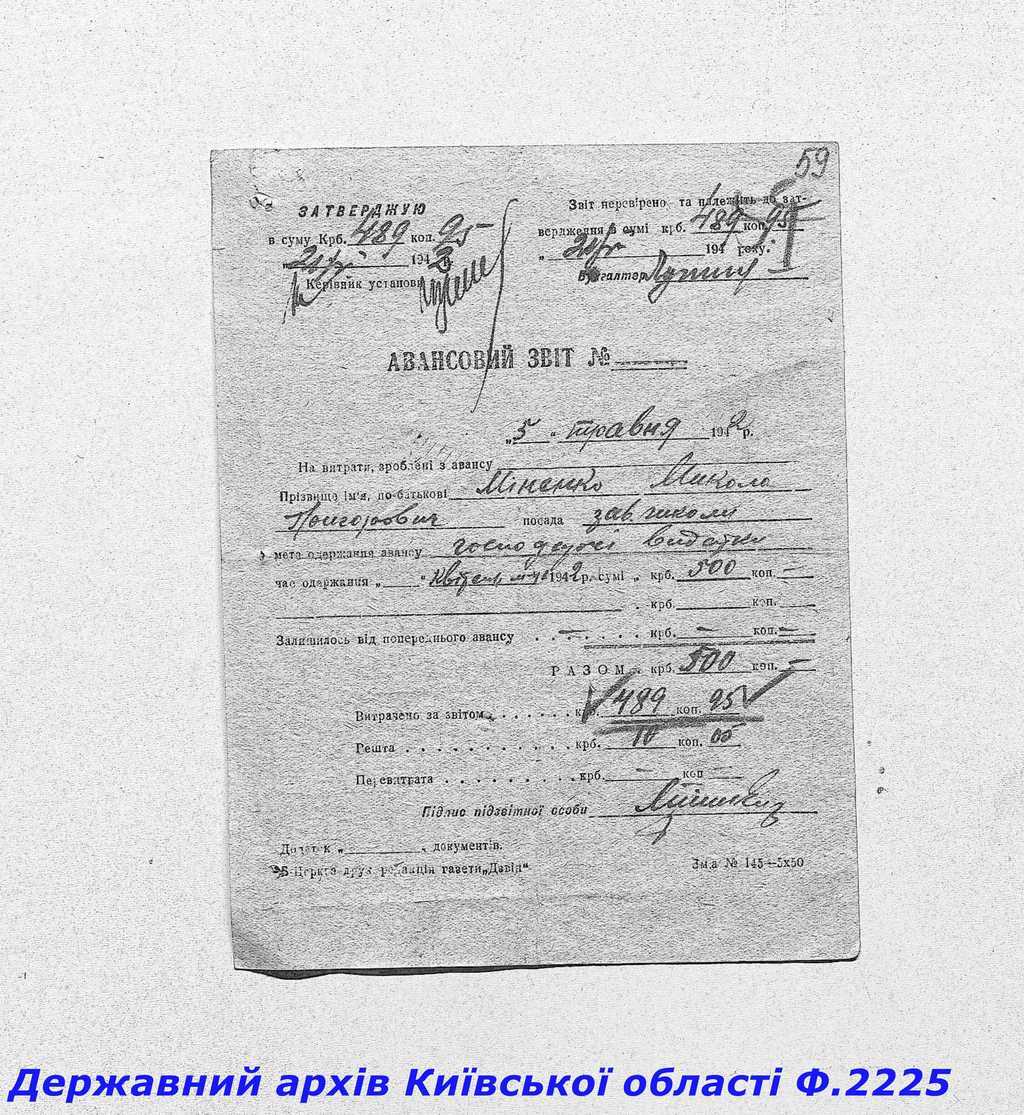 59
ЗАТВЕРДЖУЮ
в суму Крб. 489 коп. 95
1942 р.
Керівник установи
Звіт перевірено та належить до зат-
вердження в сумі крб. 489 коп. 95
" 194 року.
Бухгалтер
АВАНСОВИЙ ЗВІТ №
"5" травня 1942 р.
На витрати, зроблені з авансу
Прізвище ім'я, по-батькові Міненко Микола
Григорович посада зав. школи
мета одержання авансу господарчі видатки
час одержання " " квітень м-ць 1942 р. сумі крб. 500 коп. —
крб. коп.
Залишилось від попереднього авансу . . . . . . . крб. — коп. —
РАЗОМ крб. 500 коп. —
Витрачено за звітом . . . . . . крб. 489 коп. 95
Решта . . . . . . . . . . . крб. 10 коп. 05
Перевитрата . . . . . . . . . крб. — коп —
Підпис підзвітної особи
Додаток " " документів.
Б-Церква друк редакція газети
№ 145—5х50
Державний архів Київської області Ф.2225